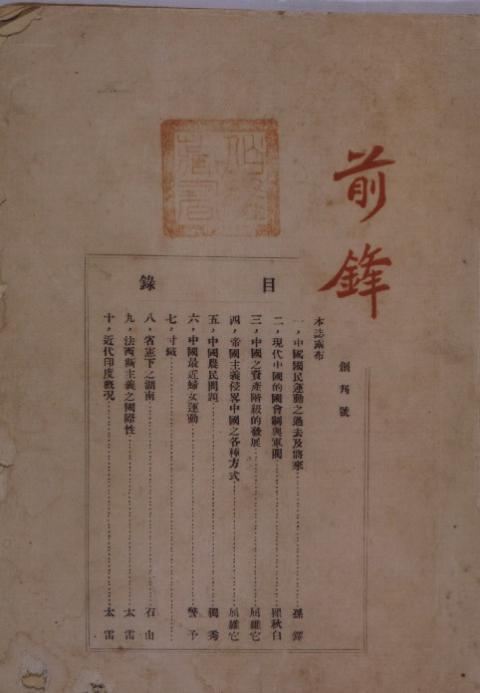 前鋒
創刊號
目錄
本誌露布
一，中國國民運動之過去及將來 孫鐸
二，現代中國的國會制與軍閥 瞿秋白
三，中國之資產階級的發展 屈維它
四，帝國主義侵畧中國之各種方式 屈維它
五，中國農民問題 獨秀
六，中國最近婦女運動 警予
七，寸鐵
八，省憲下之湖南 石山
九，法西斯主義之國際性 太雷
十，近代印度概况 太雷